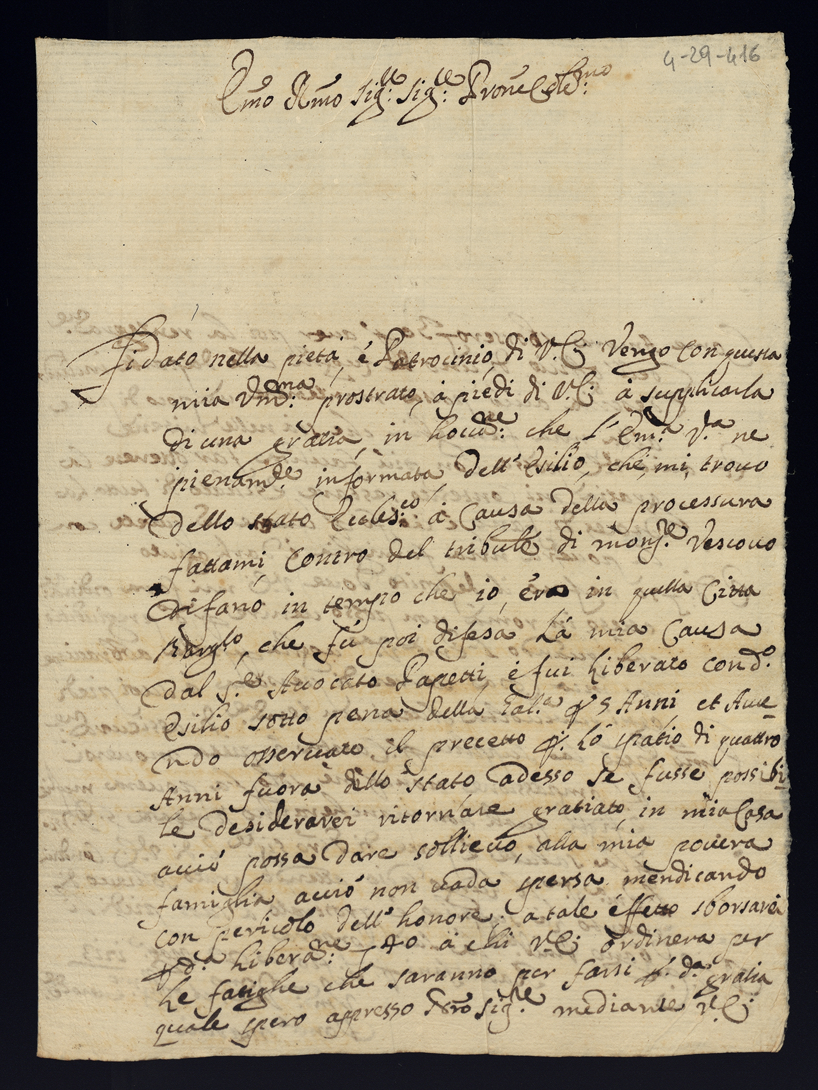 4-29-416
Emo Rmo Sig:re Sig:re Prone Colle:mo
Fidato nella pietà, è Patrocinio, di V.E: Vengo con questa
mia Um:ma, prostrato, à piedi di V.E: à supplicarla
di una gratia, in hocca:ne che l'Em:a V:a ne
pienam:te informata, dell'Esilio, che, mi, trovo
dello stato Eccles:co, à Causa della processura
fattami, Contro del tribule di monsr:e Vescovo
di fano, in tempo che io, ero in quella Città
che fù poi difesa La mia Causa
dal s:r Avocato Papetti, è fui liberato con d:o
Esilio sotto pena della Gal:a p 5 Anni et Ave=
ndo osservato il precetto p: lo spatio di quattro
Anni fuora dello stato adesso se fusse possibi=
le desiderarei ritornare gratiato, in mia Casa
acciò possa dare sollievo, alla mia povera
famiglia acciò non vada spersa mendicando
con pericolo dell'honore: a tale effetto sborsarei
p d:a libera:ne 40 à chi V.E: ordinera per
le fatighe che saranno per farsi p: d:a gratia
quale spero appresso Nro Sig:re mediante V.E: